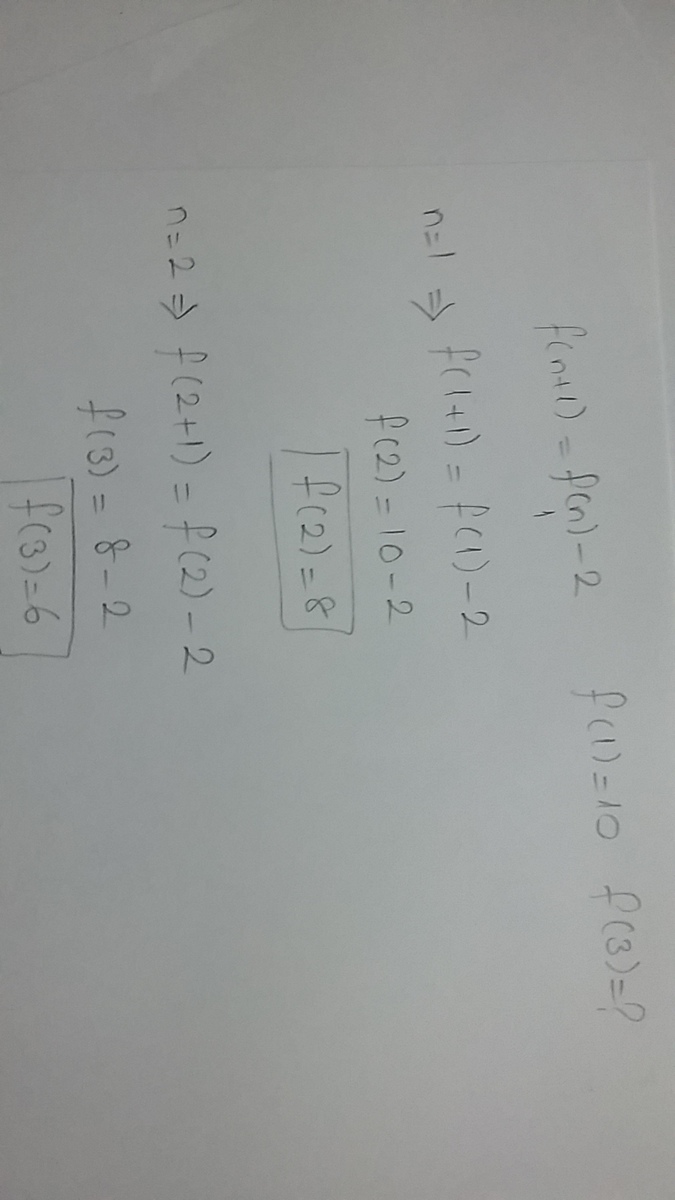 f(n+1) = f(n) - 2 f(1) = 10 f(3) = ?
n=1 ⇒ f(1+1) = f(1) - 2
f(2) = 10 - 2
f(2) = 8
n=2 ⇒ f(2+1) = f(2) - 2
f(3) = 8 - 2
f(3) = 6